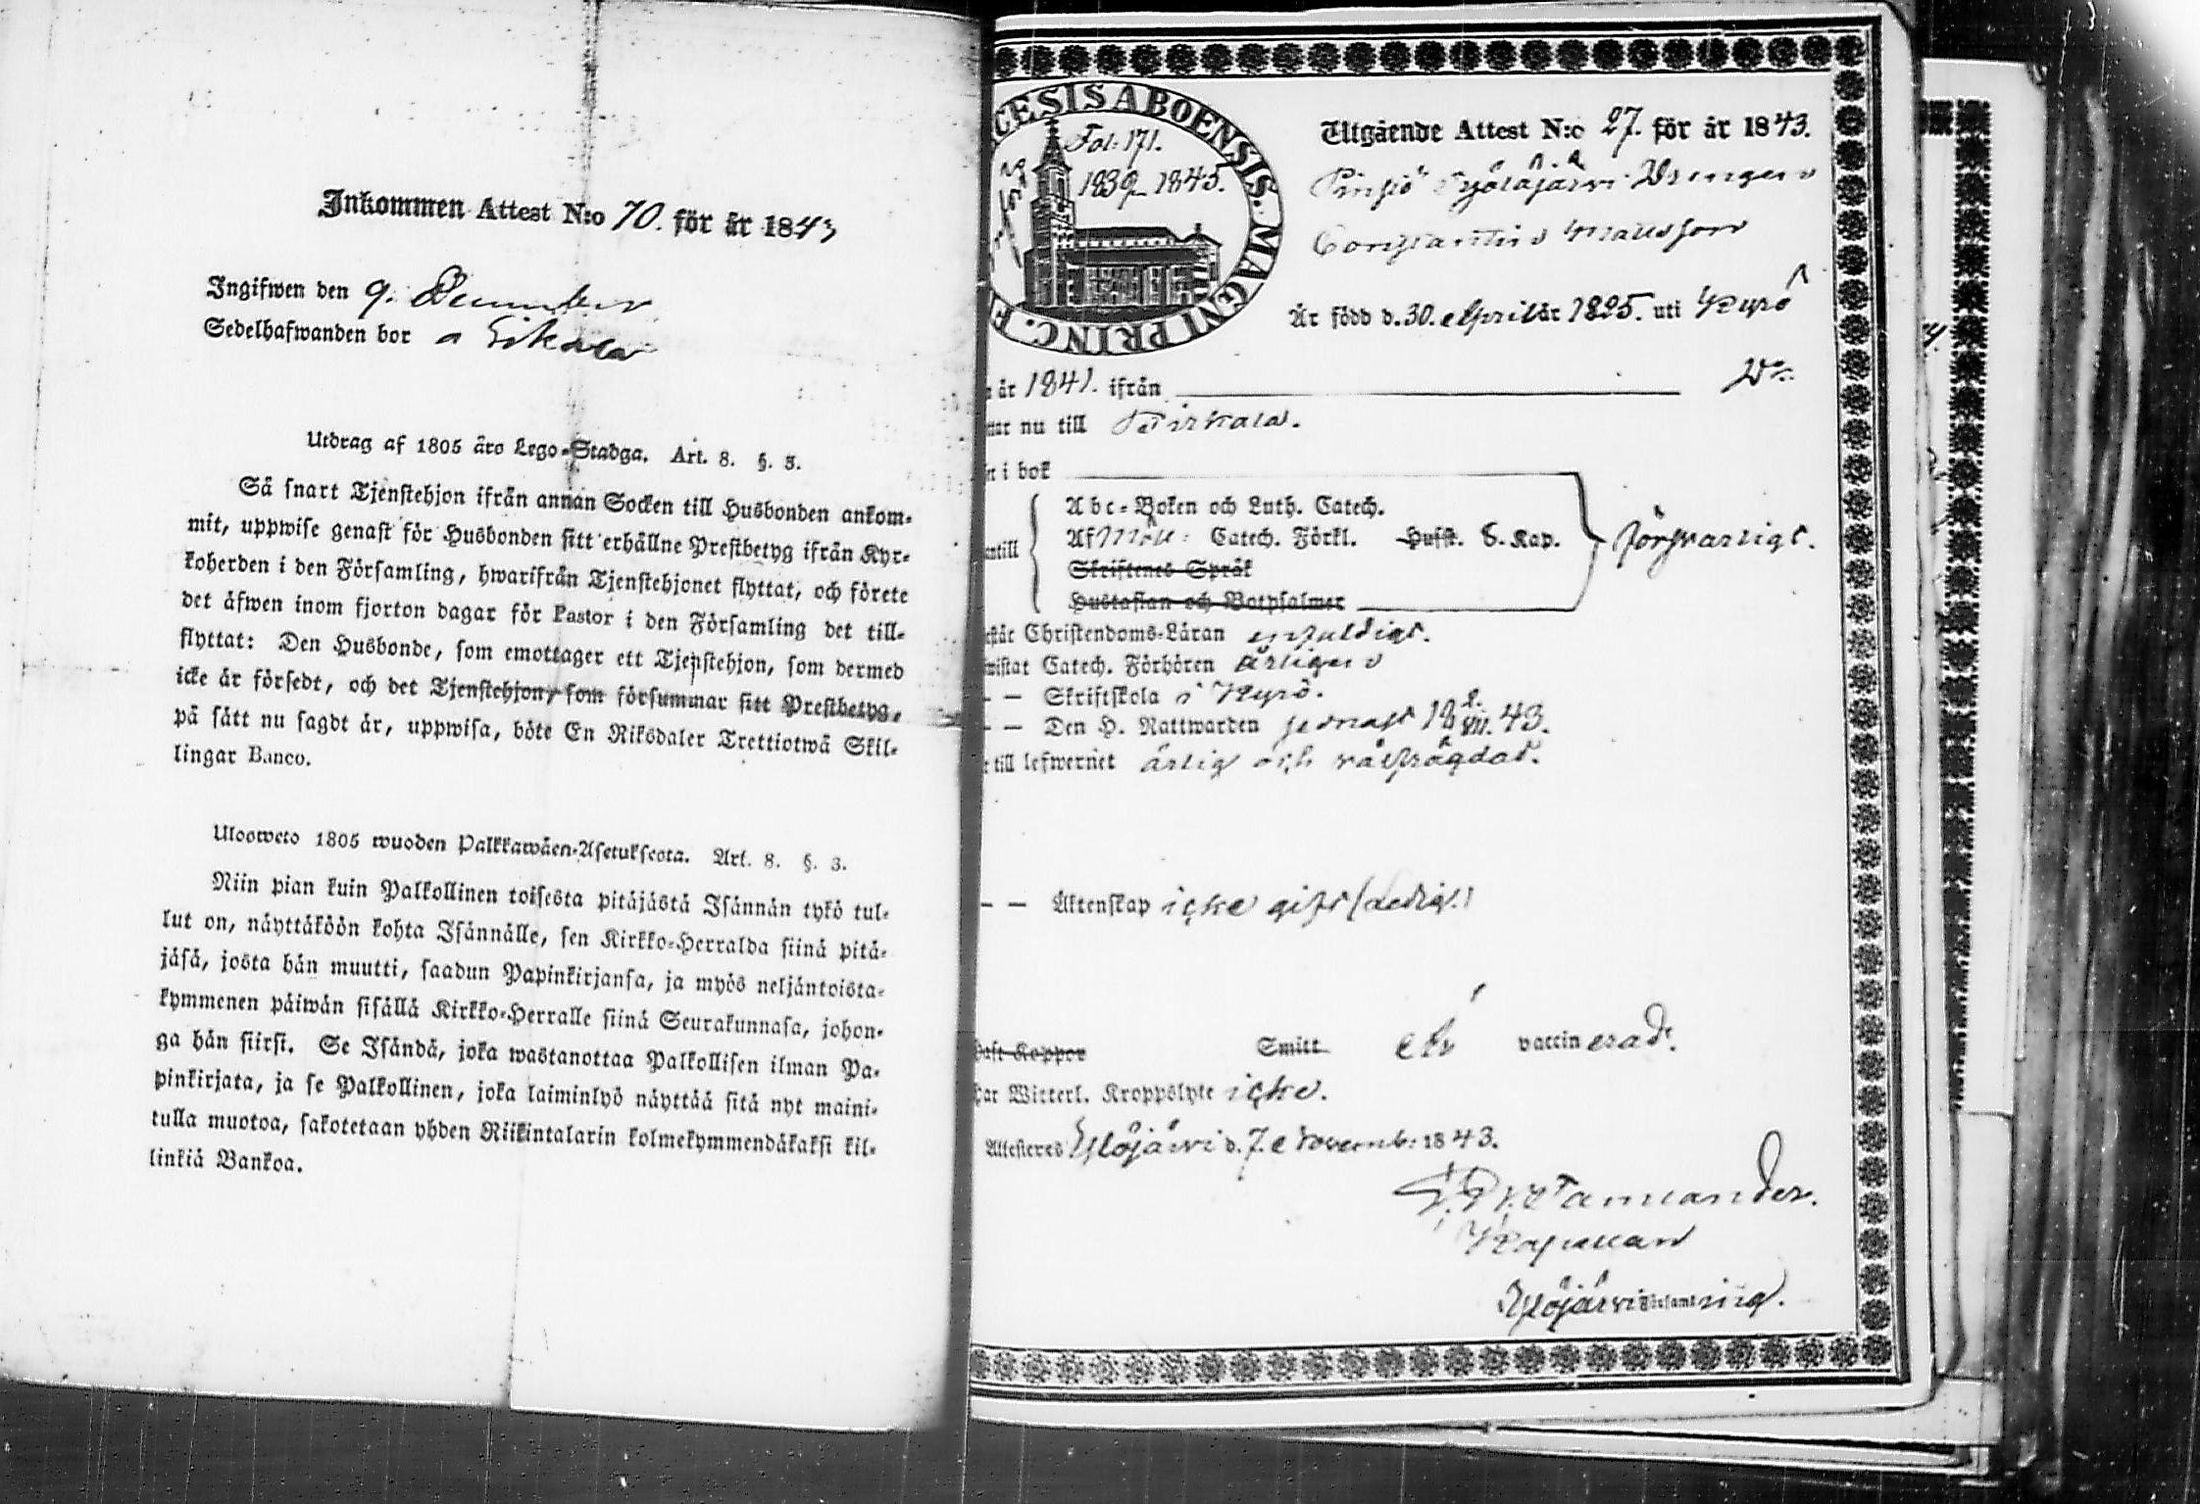 Inkommen Attest N:o 70. för år 1843
Ingifwen den 9. December
Sedelhafwanden bor
Utdrag af 1805 års Lego-Stadga. Art. 8. §. 3.
Så snart Tjenstehjon ifrån annan Socken till Husbonden ankom-
mit, uppwise genast för Husbonden sitt erhållne Prestbetyg ifrån Kyr-
koherden i den Församling, hwarifrån Tjenstehjonet flyttat, och förete
det äfwen inom fjorton dagar för Pastor i den Församling det till-
flyttat: Den Husbonde, som emottager ett Tjenstehjon, som dermed
icke är försedt, och det Tjenstehjon, som försummar sitt Prestbetyg,
på sätt nu sagdt är, uppwisa, böte En Riksdaler Trettiotwå Skil-
lingar Banco.
Uloosweto 1805 wuoden Palkkawäen-Asetuksesta. Art. 8. §. 3.
Niin pian kuin Palkollinen toisesta pitäjästä Isännän tykö tul-
lut on, näyttäköön kohta Isännälle, sen Kirkko-Herralda siinä pitä-
jäsä, josta hän muutti, saadun Papinkirjansa, ja myös neljäntoista-
kymmenen päiwän sisällä Kirkko-Herralle siinä Seurakunnasa, johon-
ga hän siirsi. Se Isändä, joka wastanottaa Palkollisen ilman Pa-
pinkirjata, ja se Palkollinen, joka laiminlyö näyttää sitä nyt maini-
tulla muotoa, sakotetaan yhden Riikintalarin kolmekymmendäkaksi kil-
linkiä Bankoa.
CESIS ABOENSIS. MAGNI PRINC. F
Fol. 171.
1839–1845.
Utgående Attest N:o 27. för år 1843.
Pinsiö Ylöjärvi Drengen
Constantin Mattsson
Är född d. 30. April år 1825. uti Kyrö
år 1841. ifrån D:o
nu till Birkala.
i bok
Abc-Boken och Luth. Catech.
Af Möll: Catech. Förkl. Husst. S. Kap.
Skriftenes Språk
Hustaflan och Botpsalmer
försvarligt.
Christendoms-Läran enfaldigt.
Catech. Förhören årligen
— — Skriftskola i Kyrö.
— — Den H. Nattwarden senast 18 2/VII. 43.
till lefwernet ärlig och välfrägdad.
— — Äktenskap icke gift (ledig.)
Koppor Smitt är vaccinerad.
har Witterl. Kroppslyte icke.
Attesteres Ylöjärvi d. 7. Novemb: 1843.
Tamlander.
Kapellan
Ylöjärvi